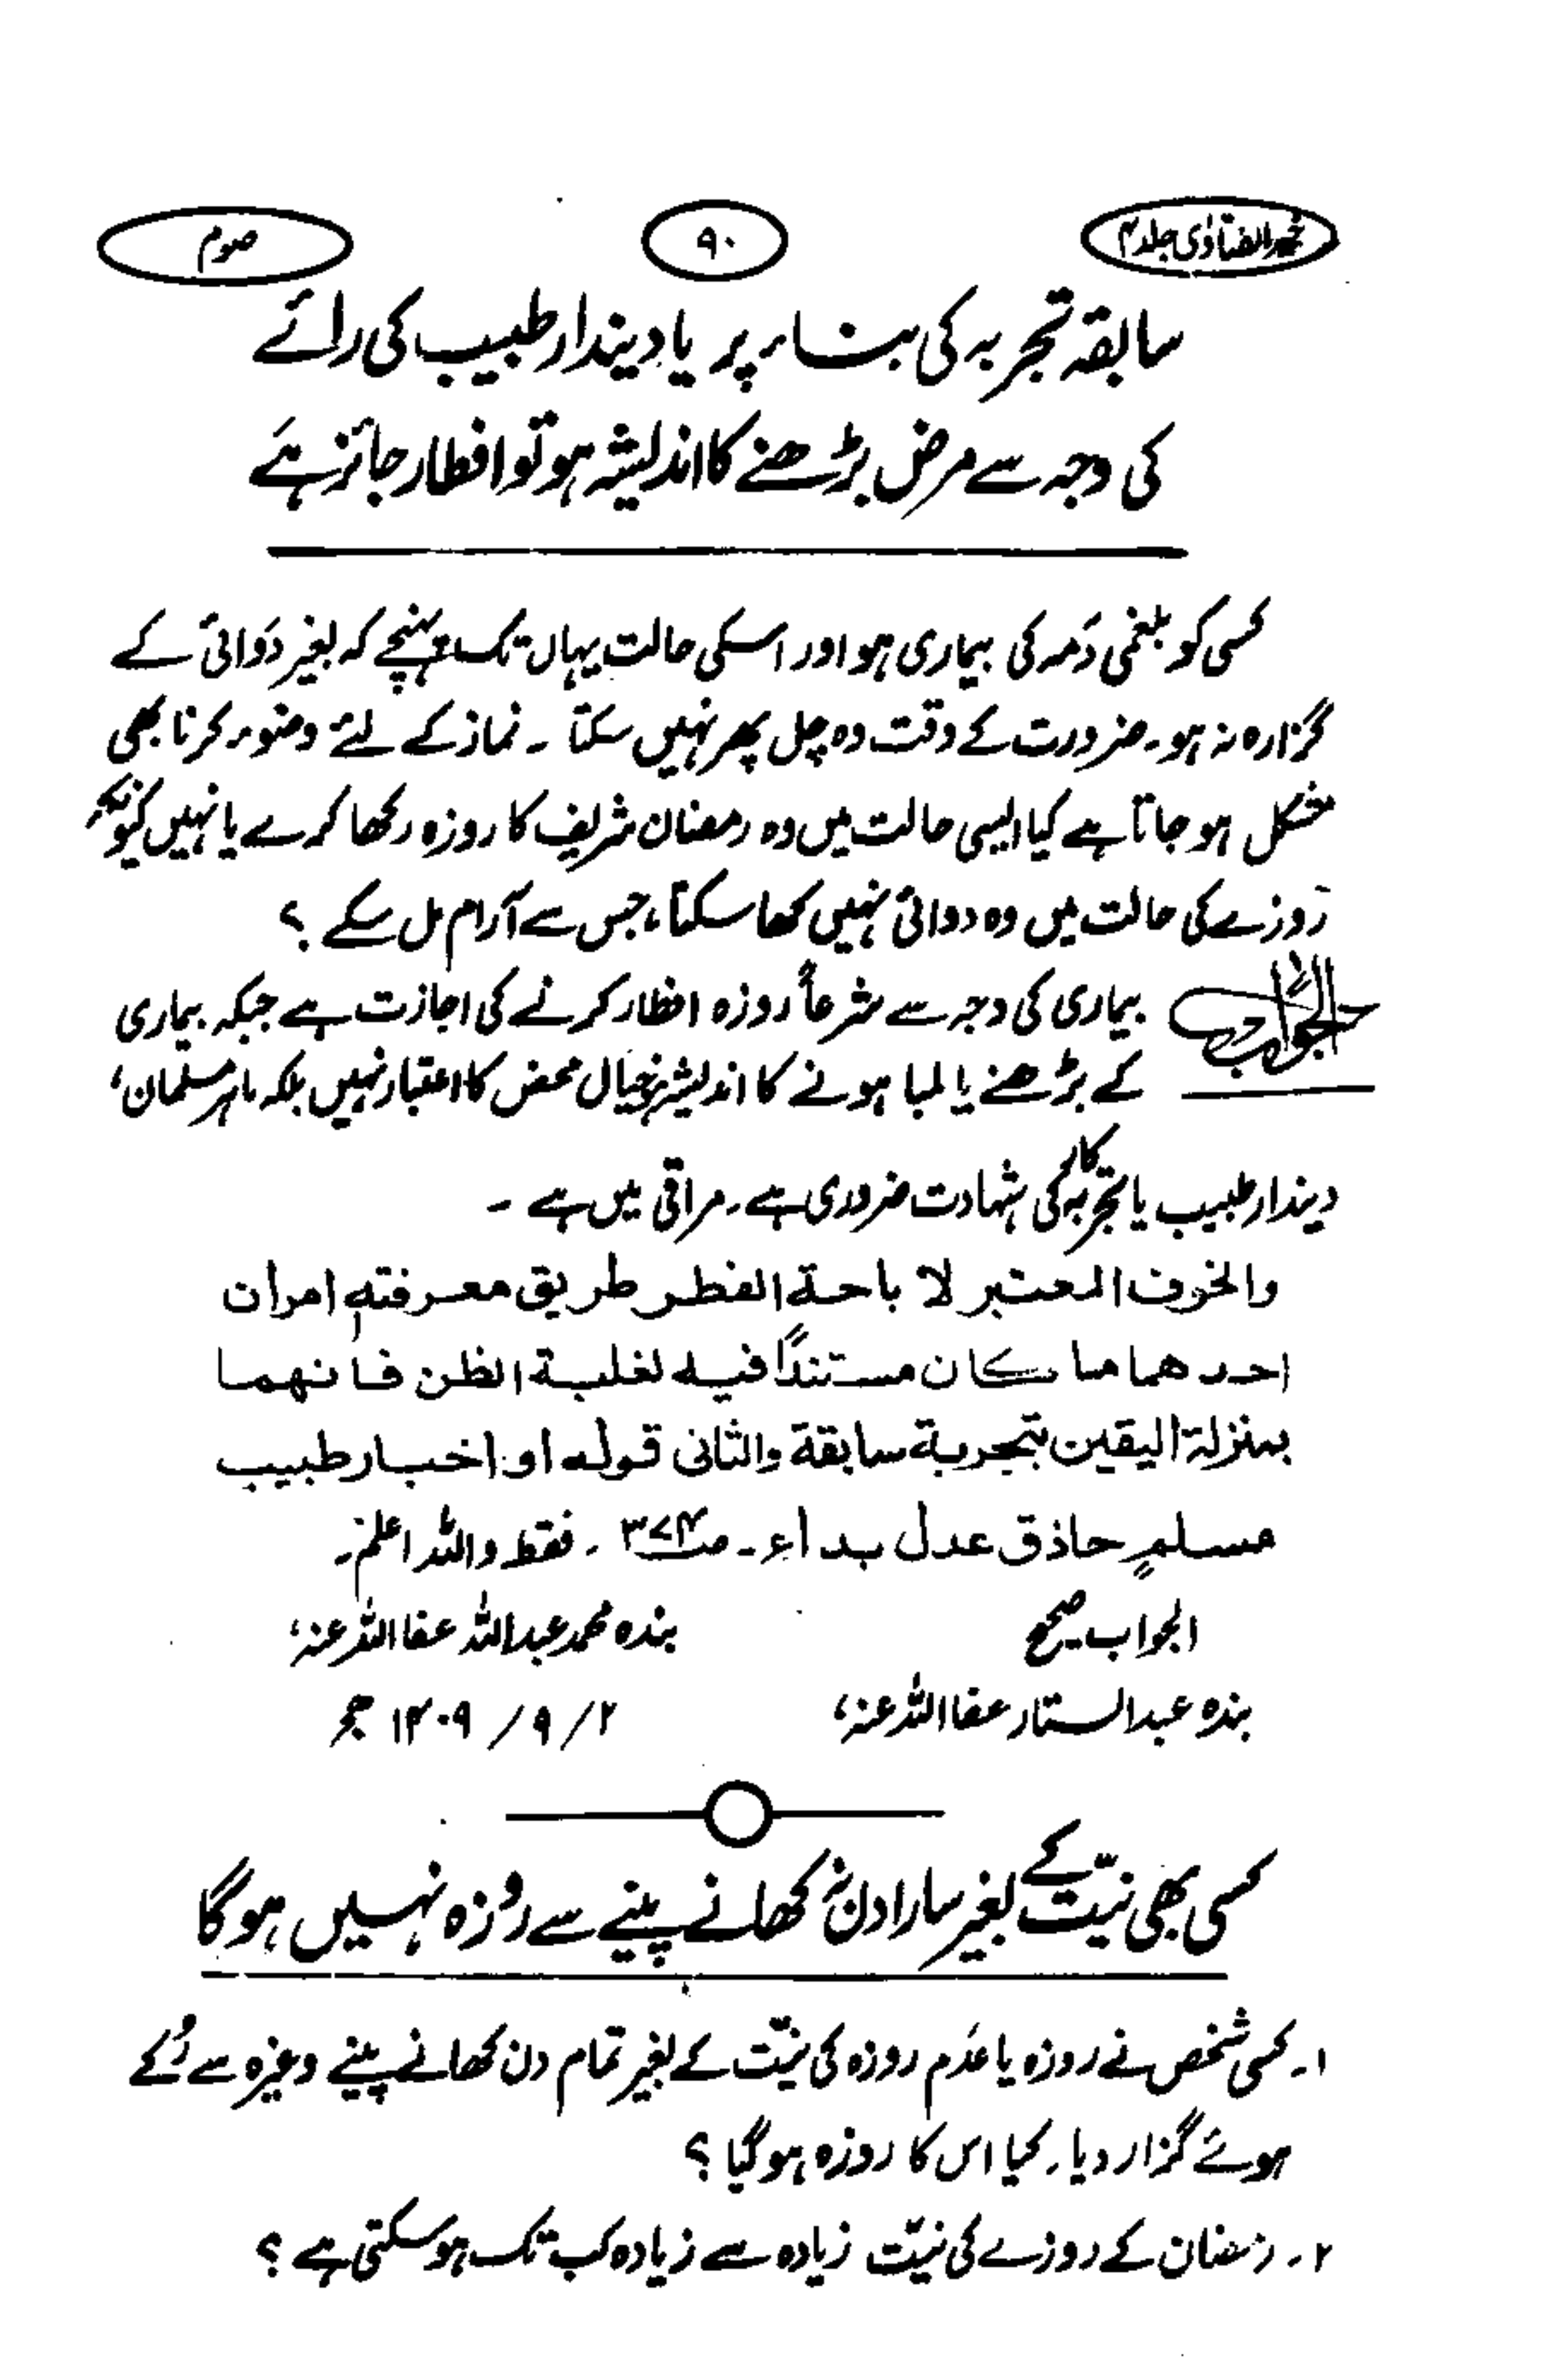 خیر الفتاویٰ جلد ۴
۹۰
صوم
سابقہ تجربہ کی بناء پر یا دیندار طبیب کی رائے
کی وجہ سے مرض بڑھنے کا اندیشہ ہو تو افطار جائز ہے
کسی کو بلغمی دَمہ کی بیماری ہو اور اسکی حالت یہاں تک پہنچے کہ بغیر دَوائی کے
گزارہ نہ ہو۔ ضرورت کے وقت وہ چل پھر نہیں سکتا۔ نماز کے لئے وضوء کرنا بھی
مشکل ہو جاتا ہے کیا ایسی حالت میں وہ رمضان شریف کا روزہ رکھا کرے یا نہیں کیونکہ
روزے کی حالت میں وہ دوائی نہیں کھا سکتا، جس سے آرام مل سکے ؟
الجواب
بیماری کی وجہ سے شرعاً روزہ افطار کرنے کی اجازت ہے جبکہ بیماری
کے بڑھنے یا لمبا ہونے کا اندیشہ ہو خیال محض کا اعتبار نہیں بلکہ ماہر مسلمان،
دیندار طبیب یا تجربہ کار کی شہادت ضروری ہے۔ مراقی میں ہے ۔
والخوف المعتبر لا باحة الفطر طريق معرفته امران
احدهما ما كان مستندًا فيه لغلبة الظن فانهما
بمنزلة اليقين بتجربة سابقة والثانى قوله او اخبار طبيب
مسلمٍ حاذق عدل بداء۔ ص۳۷۴ ۔ فقط واللہ اعلم۔
الجواب صحیح
بندہ محمد عبداللہ عفا اللہ عنہ،
بندہ عبدالستار عفا اللہ عنہ،
۲ / ۹ / ۱۴۰۹ ھ
کسی بھی نیّت کے بغیر سارا دن نہ کھانے پینے سے روزہ نہیں ہوگا
۱۔ کسی شخص نے روزہ یا عدَم روزہ کی نیّت کے بغیر تمام دن کھانے پینے وغیرہ سے رُکے
ہوئے گزار دیا۔ کیا اس کا روزہ ہو گیا ؟
۲۔ رمضان کے روزے کی نیّت زیادہ سے زیادہ کب تک ہو سکتی ہے ؟